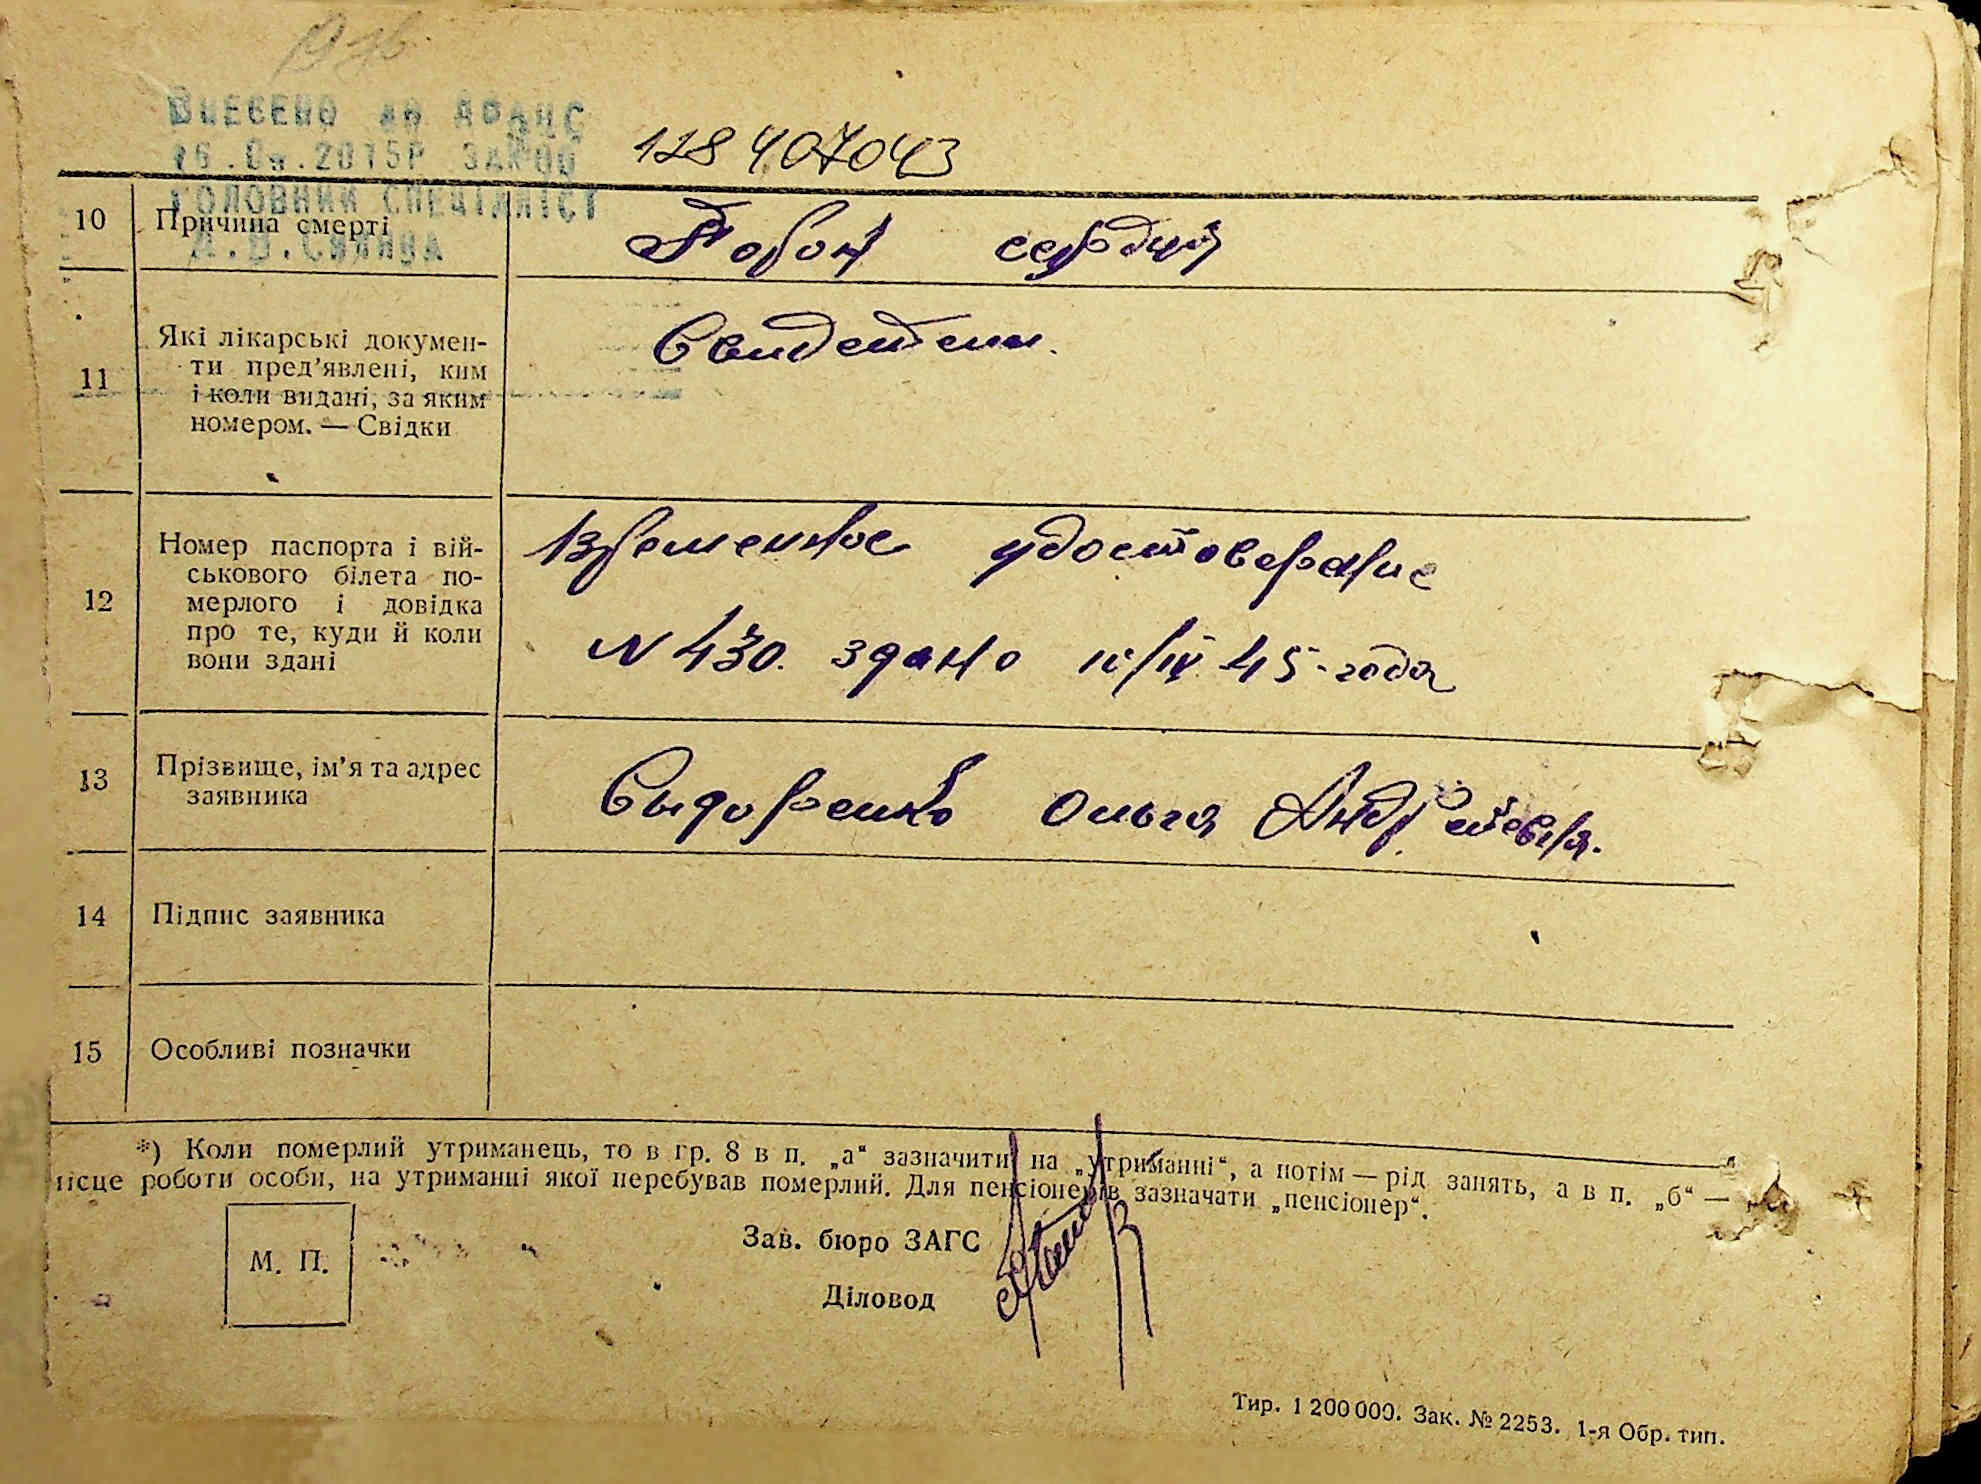 ВНЕСЕНО до ДРАЦС
2015Р
128407043
ГОЛОВНИЙ СПЕЦІАЛІСТ
10 Причина смерті
сердца
11 Які лікарські докумен-
ти пред'явлені, ким
і коли видані, за яким
номером. — Свідки
Свидетели.
12 Номер паспорта і вій-
ськового білета по-
мерлого і довідка
про те, куди й коли
вони здані
Временное удостоверение
N 430. здано IV 45-года
13 Прізвище, ім'я та адрес
заявника
Сыдоренко Ольга Андреевна.
14 Підпис заявника
15 Особливі позначки
*) Коли померлий утриманець, то в гр. 8 в п. „а“ зазначити на „утриманні“, а потім — рід занять, а в п. „б“ —
місце роботи особи, на утриманні якої перебував померлий. Для пенсіонерів зазначати „пенсіонер“.
М. П.
Зав. бюро ЗАГС
Діловод
Тир. 1 200 000. Зак. № 2253. 1-я Обр. тип.